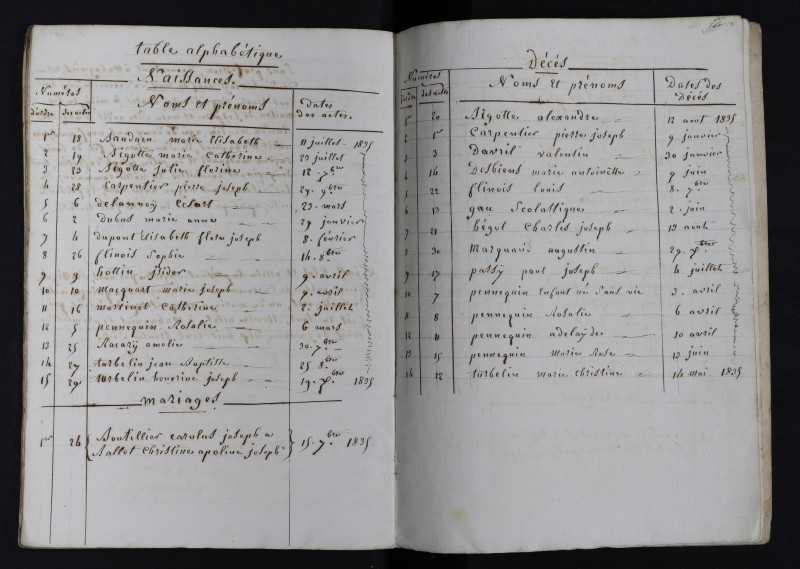 table alphabétique
Naissances
Numéros
d'ordre des actes Noms et prénoms Dates des actes
1er 18 Baudain marie Elisabeth 11 juillet 1835
2 19 Bigotte marie Catherine 23 juillet
3 23 Bigotte julie florine 12 - 7bre
4 28 Carpentier pierre joseph 29 - 9bre
5 6 delannoy Césart 23 - mars
6 2 Dubus marie anne 29 janvier
7 4 dupont Elisabeth flore joseph 8 - février
8 26 flinois Sophie 14 - 8bre
9 9 hottin isidor 9 - avril
10 10 macquart marie joseph 9 - avril
11 16 martinet Catherine 2 - juillet
12 5 pennequin Rosalie 6 mars
13 25 Racary amelie 30 - 7bre
14 27 turbelin jean Baptiste 25 8bre
15 29 turbelin honorine joseph 19 - Xbre 1835
mariages
1er 26 Boutillier carolus joseph a
Ballot Christine apoline joseph 15 - 7bre 1835
Décés
Numéros
d'ordre des actes Noms et prénoms Dates des Décés
20 Bigotte alexandre 12 aout 1835
1er Carpentier pierre joseph 9 - janvier
3 3 Davril valentin 30 janvier
14 Desbiens marie antoinette 9 juin
22 flinois louis 8 - 7bre
6 13 gau Scolastique 2 - juin
7 21 hégot Charles joseph 13 aout
30 Marquand augustin 29 - Xbre
9 17 passy paul joseph 4 juillet
10 7 pennequin Enfant né Sans vie 3 - avril
11 8 pennequin Rosalie 6 avril
12 11 pennequin adelayde 10 avril
13 15 pennequin marie Rose 13 juin
14 12 turbelin marie christine 14 mai 1835